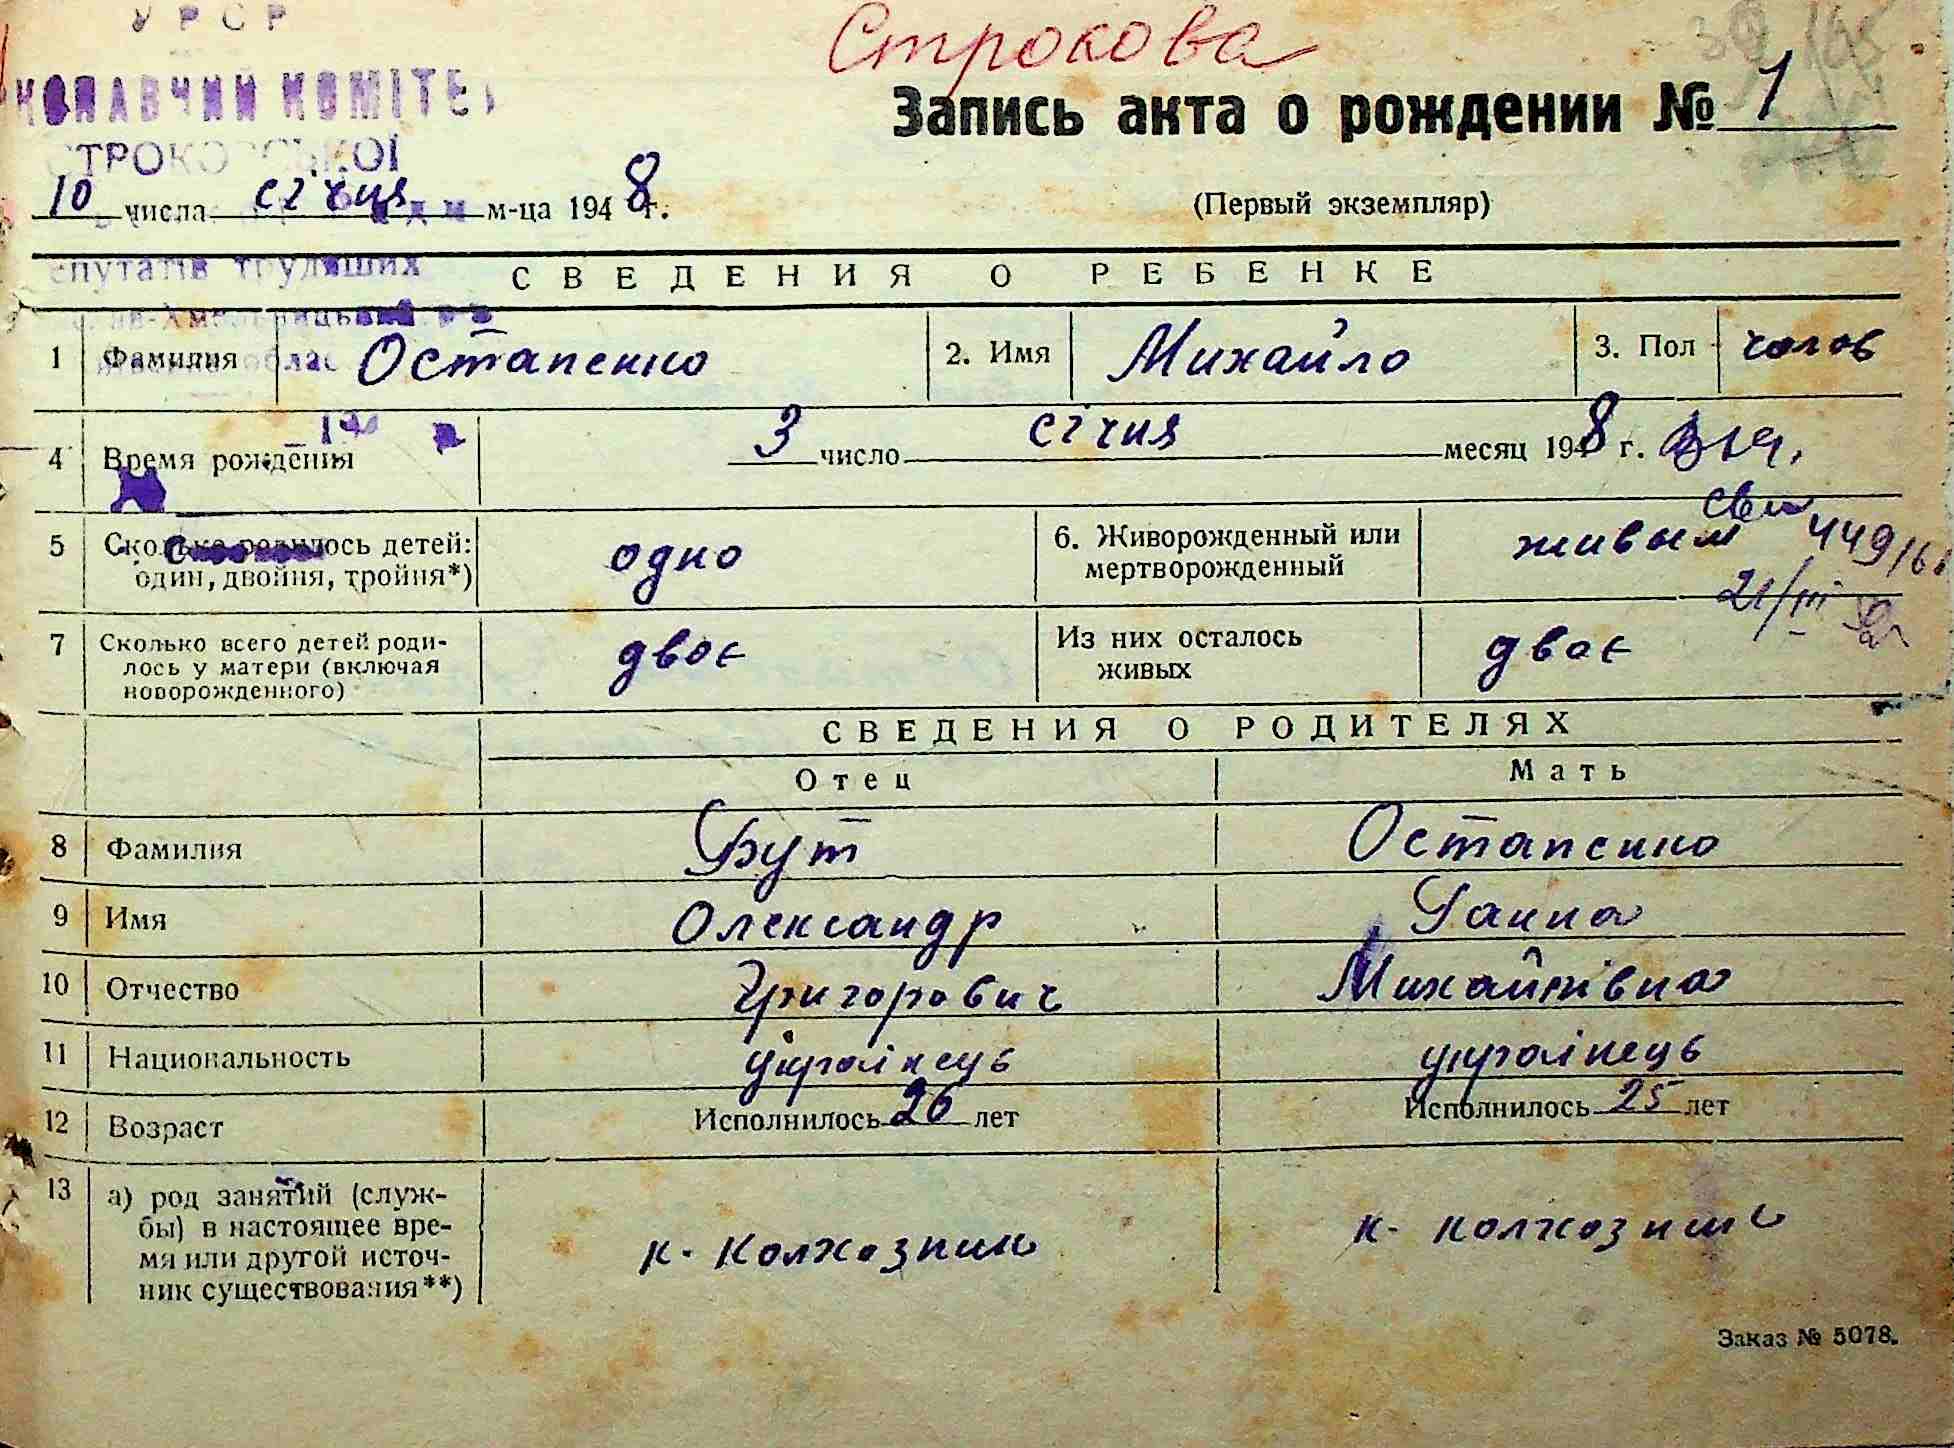 УРСР
Строкова
КОНАВЧИЙ КОМІТЕ
Запись акта о рождении № 1
СТРОКОВСЬКОЇ
10 числа січня м-ца 1948 г.
(Первый экземпляр)
епутатів трудящих
СВЕДЕНИЯ О РЕБЕНКЕ
1 Фамилия Остапенко 2. Имя Михайло 3. Пол чолов
4 Время рождения 3 число січня месяц 1948 г.
5 Сколько родилось детей: один, двойня, тройня*) одно 6. Живорожденный или мертворожденный живым
449/6
21/III
7 Сколько всего детей роди-
лось у матери (включая
новорожденного) двоє Из них осталось живых двоє
СВЕДЕНИЯ О РОДИТЕЛЯХ
Отец Мать
8 Фамилия Бут Остапенко
9 Имя Олександр Ганна
10 Отчество Григорович Михайлівна
11 Национальность українець українець
12 Возраст Исполнилось 26 лет Исполнилось 25 лет
13 а) род занятий (служ-
бы) в настоящее вре-
мя или другой источ-
ник существования**) к. колхозник к. колхозник
Заказ № 5078.